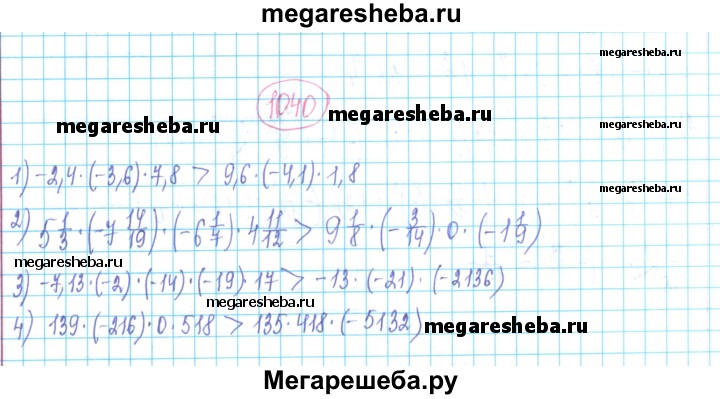 megaresheba.ru
megaresheba.ru
1040
megaresheba.ru
megaresheba.ru
megaresheba.ru
1) -2,4·(-3,6)·7,8 > 9,6·(-4,1)·1,8
megaresheba.ru
2) 5 1/3·(-7 14/19)·(-6 1/7)·4 11/12 > 9 1/8·(-3/14)·0·(-1 1/9)
megaresheba.ru
3) -7,13·(-2)·(-14)·(-19)·17 > -13·(-21)·(-2136)
megaresheba.ru
4) 139·(-216)·0·518 > 135·418·(-5132)
megaresheba.ru
Мегарешеба.ру